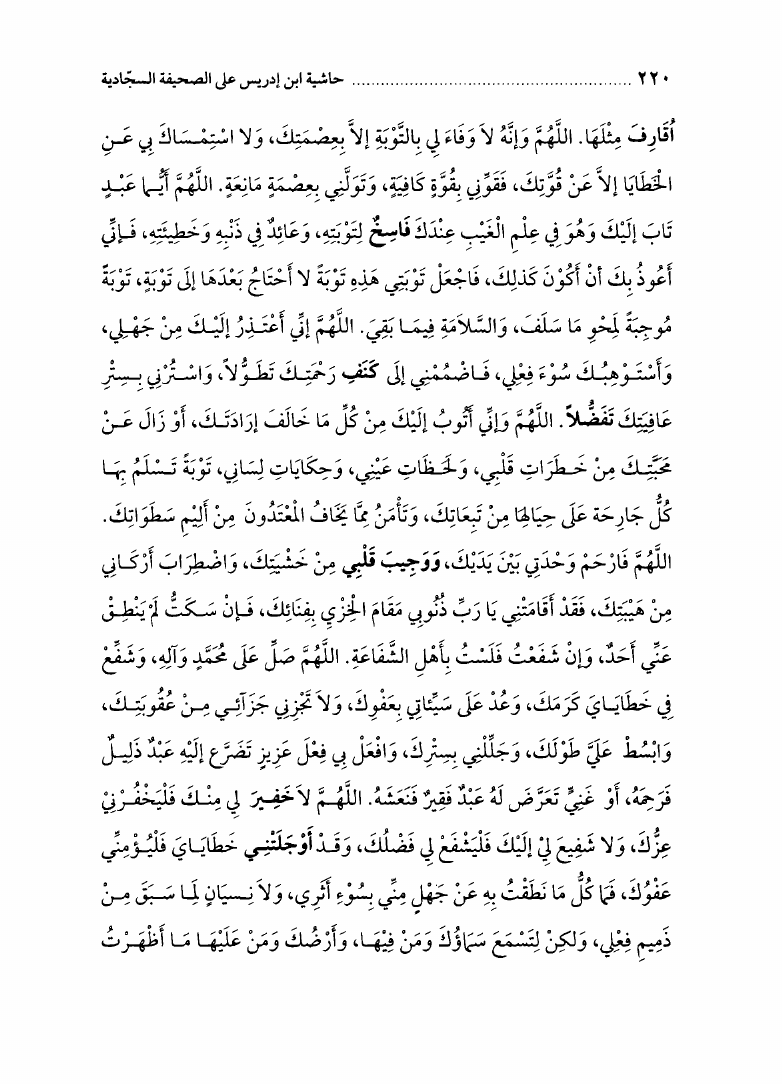 ٢٢٠ ............................................................ حاشية ابن إدريس على الصحيفة السجّادية
أُقَارِفَ مِثْلَهَا. اللَّهُمَّ وَإِنَّهُ لاَ وَفَاءَ لِي بِالتَّوْبَةِ إِلاَّ بِعِصْمَتِكَ، وَلا اسْتِمْسَاكَ بِي عَنِ
الْخَطَايَا إِلاَّ عَنْ قُوَّتِكَ، فَقَوِّنِي بِقُوَّةٍ كَافِيَةٍ، وَتَوَلَّنِي بِعِصْمَةٍ مَانِعَةٍ. اللَّهُمَّ أَيُّمَا عَبْدٍ
تَابَ إِلَيْكَ وَهُوَ فِي عِلْمِ الْغَيْبِ عِنْدَكَ فَاسِخٌ لِتَوْبَتِهِ، وَعَائِدٌ فِي ذَنْبِهِ وَخَطِيئَتِهِ، فَإِنِّي
أَعُوذُ بِكَ أَنْ أَكُوْنَ كَذلِكَ، فَاجْعَلْ تَوْبَتِي هَذِهِ تَوْبَةً لا أَحْتَاجُ بَعْدَهَا إِلَى تَوْبَةٍ، تَوْبَةً
مُوجِبَةً لِمَحْوِ مَا سَلَفَ، وَالسَّلاَمَةِ فِيمَا بَقِيَ. اللَّهُمَّ إِنِّي أَعْتَذِرُ إِلَيْكَ مِنْ جَهْلِي،
وَأَسْتَوْهِبُكَ سُوْءَ فِعْلِي، فَاضْمُمْنِي إِلَى كَنَفِ رَحْمَتِكَ تَطَوُّلاً، وَاسْتُرْنِي بِسِتْرِ
عَافِيَتِكَ تَفَضُّلاً. اللَّهُمَّ وَإِنِّي أَتُوبُ إِلَيْكَ مِنْ كُلِّ مَا خَالَفَ إِرَادَتَكَ، أَوْ زَالَ عَنْ
مَحَبَّتِكَ مِنْ خَطَرَاتِ قَلْبِي، وَلَحَظَاتِ عَيْنِي، وَحِكَايَاتِ لِسَانِي، تَوْبَةً تَسْلَمُ بِهَا
كُلُّ جَارِحَة عَلَى حِيَالِهَا مِنْ تَبِعَاتِكَ، وَتَأْمَنُ مِمَّا يَخَافُ الْمُعْتَدُونَ مِنْ أَلِيْمِ سَطَوَاتِكَ.
اللَّهُمَّ فَارْحَمْ وَحْدَتِي بَيْنَ يَدَيْكَ، وَوَجِيبَ قَلْبِي مِنْ خَشْيَتِكَ، وَاضْطِرَابَ أَرْكَانِي
مِنْ هَيْبَتِكَ، فَقَدْ أَقَامَتْنِي يَا رَبِّ ذُنُوبِي مَقَامَ الْخِزْيِ بِفِنَائِكَ، فَإِنْ سَكَتُّ لَمْ يَنْطِقْ
عَنِّي أَحَدٌ، وَإِنْ شَفَعْتُ فَلَسْتُ بِأَهْلِ الشَّفَاعَةِ. اللَّهُمَّ صَلِّ عَلَى مُحَمَّدٍ وَآلِهِ، وَشَفِّعْ
فِي خَطَايَايَ كَرَمَكَ، وَعُدْ عَلَى سَيِّئاتِي بِعَفْوِكَ، وَلاَ تَجْزِنِي جَزَآئِي مِنْ عُقُوبَتِكَ،
وَابْسُطْ عَلَيَّ طَوْلَكَ، وَجَلِّلْنِي بِسِتْرِكَ، وَافْعَلْ بِي فِعْلَ عَزِيزٍ تَضَرَّع إِلَيْهِ عَبْدٌ ذَلِيلٌ
فَرَحِمَهُ، أَوْ غَنِيٍّ تَعَرَّضَ لَهُ عَبْدٌ فَقِيرٌ فَنَعَشَهُ. اللَّهُمَّ لاَ خَفِيرَ لِي مِنْكَ فَلْيَخْفُرْنِيْ
عِزُّكَ، وَلا شَفِيعَ لِيْ إِلَيْكَ فَلْيَشْفَعْ لِي فَضْلُكَ، وَقَدْ أَوْجَلَتْنِي خَطَايَايَ فَلْيُؤْمِنِّي
عَفْوُكَ، فَمَا كُلُّ مَا نَطَقْتُ بِهِ عَنْ جَهْلٍ مِنِّي بِسُوْءِ أَثَرِي، وَلاَ نِسيَانٍ لِمَا سَبَقَ مِنْ
ذَمِيمِ فِعْلِي، وَلكِنْ لِتَسْمَعَ سَمَاؤُكَ وَمَنْ فِيْهَا، وَأَرْضُكَ وَمَنْ عَلَيْهَا مَا أَظْهَرْتُ